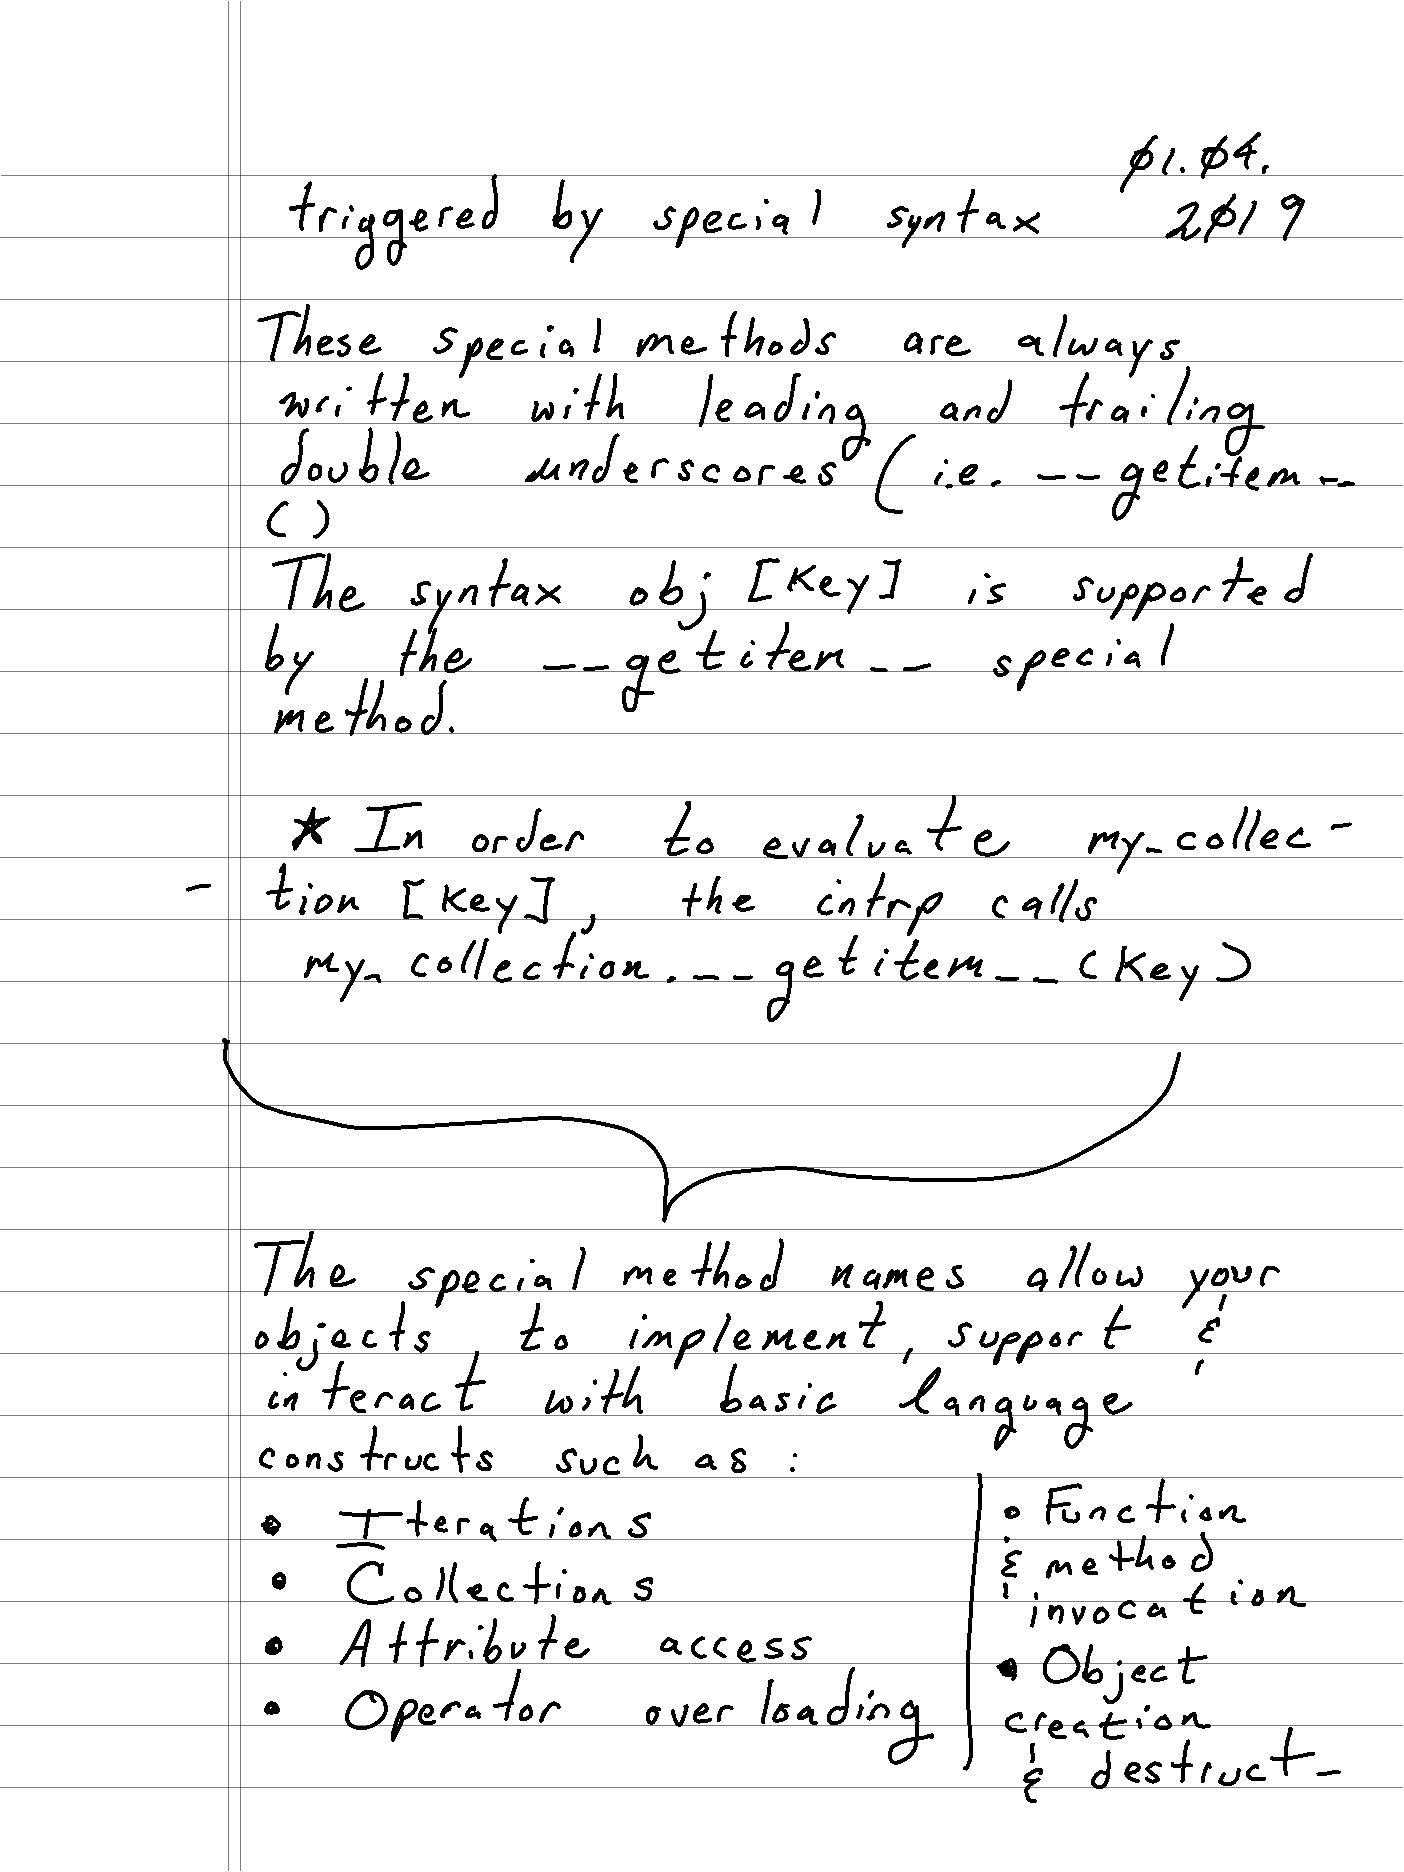 01.04.
triggered by special syntax 2019
These special methods are always
written with leading and trailing
double underscores (i.e. __getitem__
()
The syntax obj [Key] is supported
by the __getitem__ special
method.
★ In order to evaluate my_collec-
- tion [Key], the intrp calls
my_collection.__getitem__(Key)
The special method names allow your
objects, to implement, support &
interact with basic language
constructs such as:
• Iterations
• Collections
• Attribute access
• Operator overloading
• Function
& method
invocation
• Object
creation
& destruct-